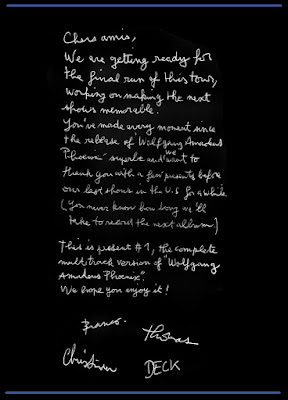 Chers amis,
We are getting ready for
the final run of this tour,
working on making the next
shows memorable.
You've made every moment since
the release of "Wolfgang Amadeus
Phoenix" superbe and we want to
thank you with a few presents before
our last shows in the U.S for a while.
(You never know how long we'll
take to record the next album.)
This is present #1, the complete
multitrack version of "Wolfgang
Amadeus Phoenix".
We hope you enjoy it!
Branco. Thomas
Christian DECK